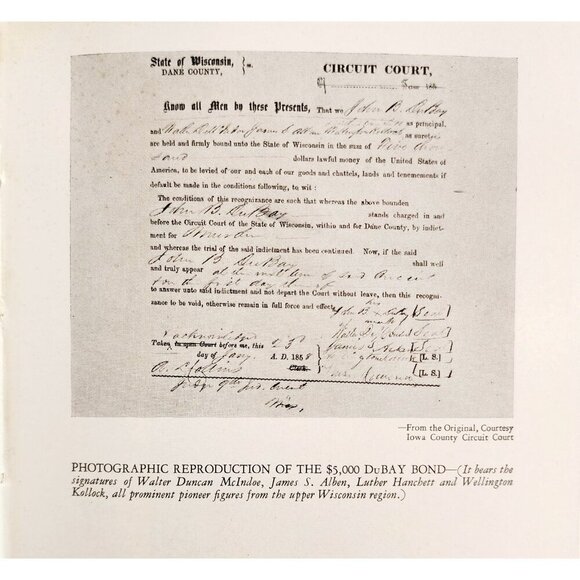 State of Wisconsin, } ss.
DANE COUNTY,
CIRCUIT COURT,
Know all Men by these Presents, That we John B. DuBay
as principal,
and as sureties
are held and firmly bound unto the State of Wisconsin in the sum of Five thou
sand dollars lawful money of the United States of
America, to be levied of our and each of our goods and chattels, lands and tenements if
default be made in the conditions following, to wit:
The conditions of this recognizance are such that whereas the above bounden
John B. DuBay stands charged in and
before the Circuit Court of the State of Wisconsin, within and for Dane County, by indict-
ment for Murder
and whereas the trial of the said indictment has been continued. Now, if the said
John B DuBay shall well
and truly appear at the next term of said Circuit
on the first day thereof
to answer unto said indictment and not depart the Court without leave, then this recogni-
sance to be void, otherwise remain in full force and effect.
his
John B x DuBay [Seal]
mark
Walter D. McIndoe [Seal]
Taken in open Court before me, this 25
James S. Alben [Seal]
day of Jany A. D. 1858
[L. S.]
Clerk.
[L. S.]
—From the Original, Courtesy
Iowa County Circuit Court
PHOTOGRAPHIC REPRODUCTION OF THE $5,000 DuBAY BOND—(It bears the
signatures of Walter Duncan McIndoe, James S. Alben, Luther Hanchett and Wellington
Kollock, all prominent pioneer figures from the upper Wisconsin region.)